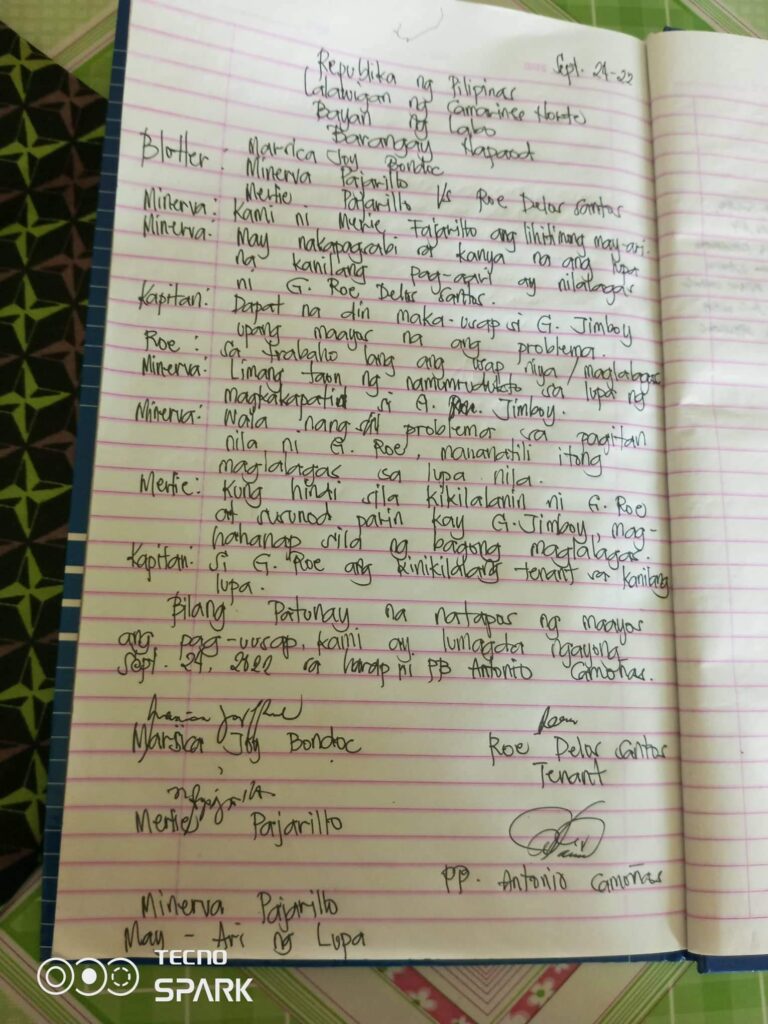 Sept. 24-22
Republika ng Pilipinas
Lalawigan ng Camarines Norte
Bayan ng Labo
Barangay
Blotter: Marsica Joy Bondoc
Minerva Pajarillo
Merfie Pajarillo V/s Roe Delos Santos
Minerva: Kami ni Merfie Pajarillo ang lihitimung may-ari.
Minerva: May nakapagsabi sa kanya na ang lupa
na kanilang pag-aari ay nilalagas
ni G. Roe Delos Santos.
Kapitan: Dapat na din maka-usap si G. Jimboy
upang maayos na ang problema.
Roe: sa trabaho lang ang usap niya / maglalagas
Minerva: Limang taon ng namumrudukto sa lupa ng
magkakapatid si G. Jimboy.
Minerva: Wala inang problema sa pagitan
nila ni G. Roe, mananatili itong
maglalagas sa lupa nila.
Merfie: Kung hindi sila kikilalanin ni G. Roe
at susunod parin kay G. Jimboy, mag-
hahanap sila ng bagong maglalagas.
Kapitan: si G. Roe ang kinikilalang tenant sa kanilang
lupa.
Bilang Patunay na natapos ng maayos
ang pag-uusap, kami ay lumagda ngayong
Sept. 24, 2022 sa harap ni PB Antonio Camoñas.
Marsica Joy Bondoc Roe Delos Santos
Tenant
Merfie Pajarillo
PP. Antonio Camoñas
Minerva Pajarillo
May - Ari ng Lupa
TECNO
SPARK